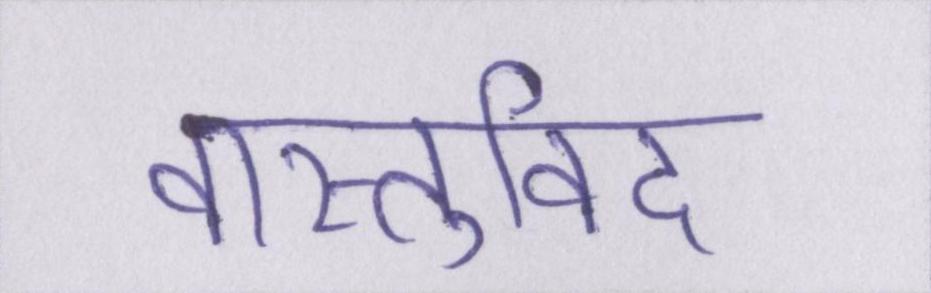 वास्तुविद